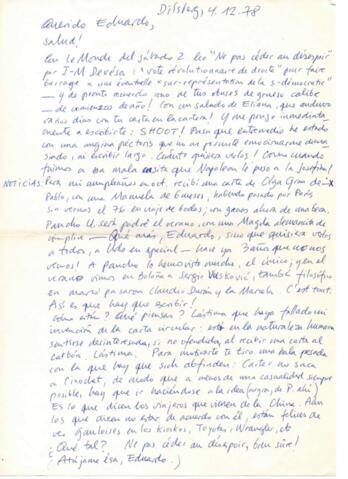 Dilsberg, 4.12.78
Querido Eduardo,
salud!
En Le Monde del sábado 2 leo "Ne pas céder au désespoir"
por J-M Devésa: "vote révolutionnaire de droite" pour faire
barrage a une éventuelle "sur-représentation de la s-démocratie"
— y de pronto recuerdo uno de tus obuses de grueso calibre
— de comienzos de año! Con un saludo de Eliana, que anduvo
varios días con tu carta en la cartera! Y me pongo inmediata
mente a escribirte: SHOOT! Pasa que entremedio he estado
con una angina pectoris que no me permite emocionarme dema
siado; ni escribir largo. Cuánto quisiera verlos! Como cuando
fuimos a esa mala casita que Napoleon le puso a la Josefina!
NOTICIAS: Para mi cumpleaños en oct. recibí una carta de Olga Gran de
Pablo, con una Manuela de 6 meses, habiendo pasado por París
sin vernos el 76 en viaje de bodas; con ganas ahora de una beca.
Pancho U. será padre el verano, con una Magda alemana de
cómplice — Qué más, Eduardo, sino que quisiera verlos
a todos, a Udo en especial — hace ya 3 años que no nos
vemos! A Pancho lo hemos visto mucho, el único; y en el
verano vimos en Boloña a Sergio Vuskovic, también filósofo
en mayo pasaron Claudio Durán y la Marcela. C'est tout.
Así es que hay que escribir!
Cómo están? Qué piensan? Lástima que haya fallado mi
invención de la carta circular: está en la naturaleza humana
sentirse desinteresado, si no ofendido, al recibir una carta al
carbón. Lástima. Para motivarte te tiro una bala pesada
con la que hay que sobrentender: Carter no saca
a Pinochet, de modo que a menos de una casualidad siempre
posible, hay que ir haciéndose a la idea (negra, de P. ahí)
Es lo que dicen los viajeros que vienen de la China. Aun
los que dicen no estar de acuerdo con él, están felices de
ver Gauloises en los kioskos, Toyotas, Wrangler, etc
¿Qué tal? Ne pas céder au désespoir, bien sûre!
(Atájame ésa, Eduardo.)